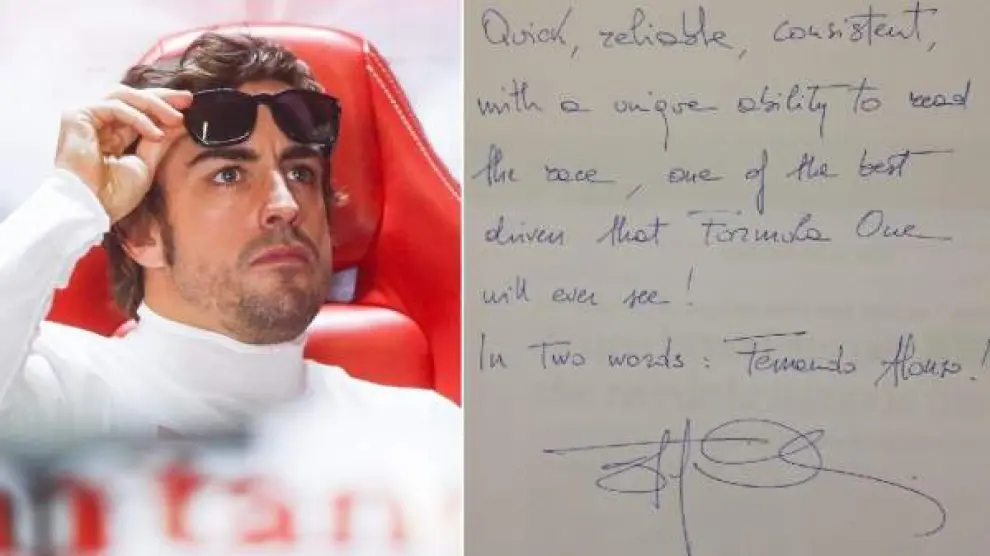 Quick, reliable, consistent,
with a unique ability to read
the race, one of the best
driven that Formula One
will ever see!
In two words: Fernando Alonso!